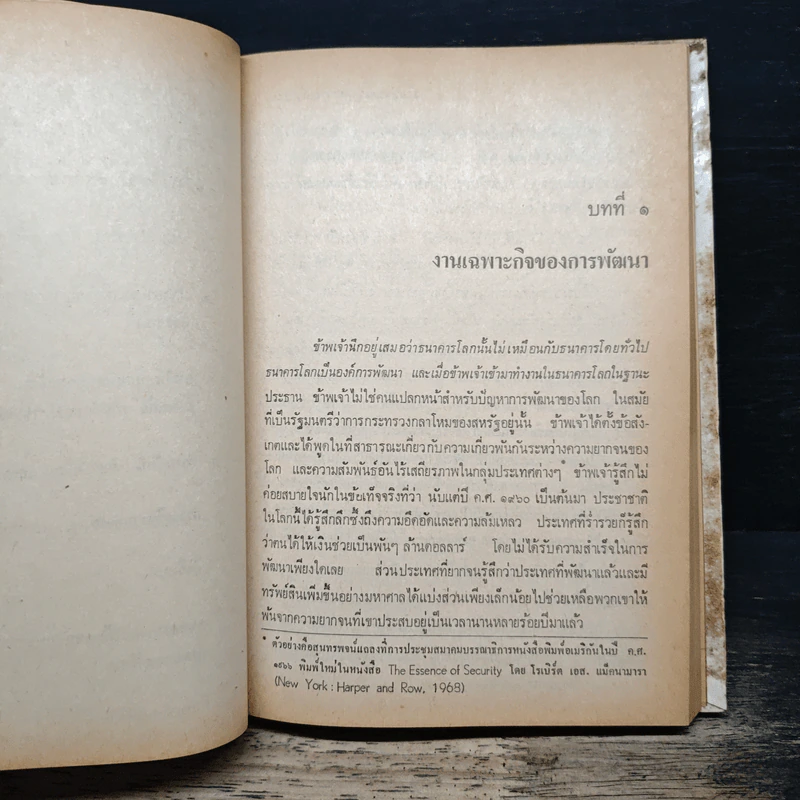 บทที่ ๑
งานเฉพาะกิจของการพัฒนา
ข้าพเจ้านึกอยู่เสมอว่าธนาคารโลกนั้นไม่เหมือนกับธนาคารโดยทั่วไป
ธนาคารโลกเป็นองค์การพัฒนา และเมื่อข้าพเจ้าเข้ามาทำงานในธนาคารโลกในฐานะ
ประธาน ข้าพเจ้าไม่ใช่คนแปลกหน้าสำหรับปัญหาการพัฒนาของโลก ในสมัย
ที่เป็นรัฐมนตรีว่าการกระทรวงกลาโหมของสหรัฐอยู่นั้น ข้าพเจ้าได้ตั้งข้อสัง-
เกตและได้พูดในที่สาธารณะเกี่ยวกับความเกี่ยวพันกันระหว่างความยากจนของ
โลก และความสัมพันธ์อันไร้เสถียรภาพในกลุ่มประเทศต่างๆ* ข้าพเจ้ารู้สึกไม่
ค่อยสบายใจนักในข้อเท็จจริงที่ว่า นับแต่ปี ค.ศ. ๑๙๖๐ เป็นต้นมา ประชาชาติ
ในโลกนี้ได้รู้สึกลึกซึ้งถึงความอึดอัดและความล้มเหลว ประเทศที่ร่ำรวยก็รู้สึก
ว่าตนได้ให้เงินช่วยเป็นพันๆ ล้านดอลลาร์ โดยไม่ได้รับความสำเร็จในการ
พัฒนาเพียงใดเลย ส่วนประเทศที่ยากจนรู้สึกว่าประเทศที่พัฒนาแล้วและมี
ทรัพย์สินเพิ่มขึ้นอย่างมหาศาลได้แบ่งส่วนเพียงเล็กน้อยไปช่วยเหลือพวกเขาให้
พ้นจากความยากจนที่เขาประสบอยู่เป็นเวลานานหลายร้อยปีมาแล้ว
* ตัวอย่างคือสุนทรพจน์แถลงที่การประชุมสมาคมบรรณาธิการหนังสือพิมพ์อเมริกันในปี ค.ศ.
๑๙๖๖ พิมพ์ใหม่ในหนังสือ The Essence of Security โดย โรเบิร์ต เอส. แม็คนามารา
(New York : Harper and Row, 1968)